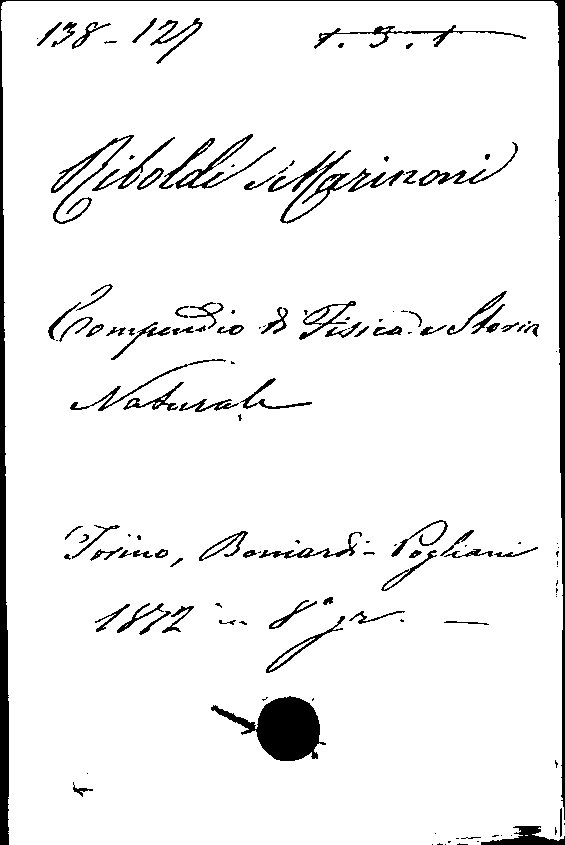 138-127 1.3.1
Riboldi e Marinoni
Compendio di Fisica e Storia
Naturale
Torino, Boniardi-Pogliani
1872 in 8° gr. —